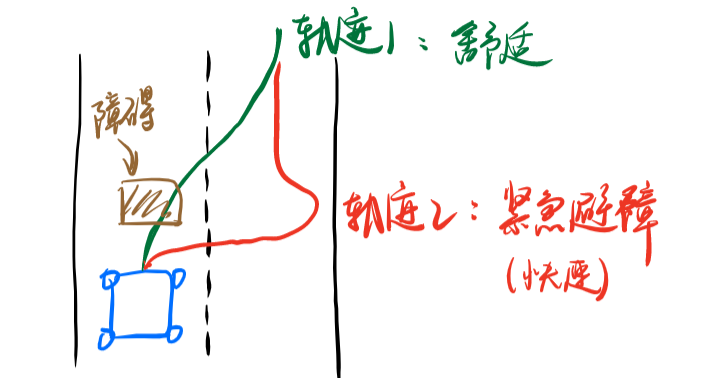 轨迹1：舒适
障碍
轨迹2：紧急避障
(快速)